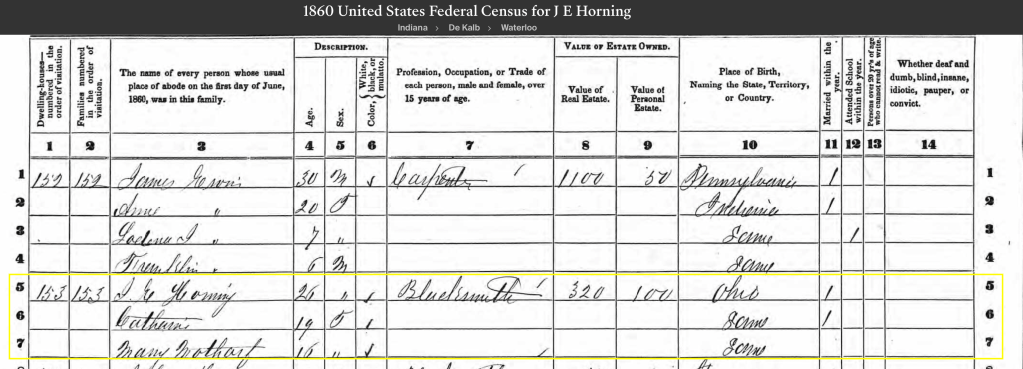 1860 United States Federal Census for J E Horning
Indiana > De Kalb > Waterloo
Dwelling-houses— numbered in the order of visitation.
Families numbered in the order of visitation.
The name of every person whose usual place of abode on the first day of June, 1860, was in this family.
DESCRIPTION.
Age.
Sex.
Color, { White, black, or mulatto.
Profession, Occupation, or Trade of each person, male and female, over 15 years of age.
VALUE OF ESTATE OWNED.
Value of Real Estate.
Value of Personal Estate.
Place of Birth, Naming the State, Territory, or Country.
Married within the year.
Attended School within the year.
Persons over 20 y'rs of age who cannot read & write.
Whether deaf and dumb, blind, insane, idiotic, pauper, or convict.
1 2 3 4 5 6 7 8 9 10 11 12 13 14
1 152 152 James 30 M Carpenter 1100 50 Pennsylvania 1 1
2 " 20 F Indiana 1 2
3 " 7 " Same 1 3
4 Franklin " 6 M Same 4
5 153 153 J. E Horning 26 " Blacksmith 320 100 Ohio 1 5
6 Catharine 19 F Same 1 6
7 Mary 16 " Same 7